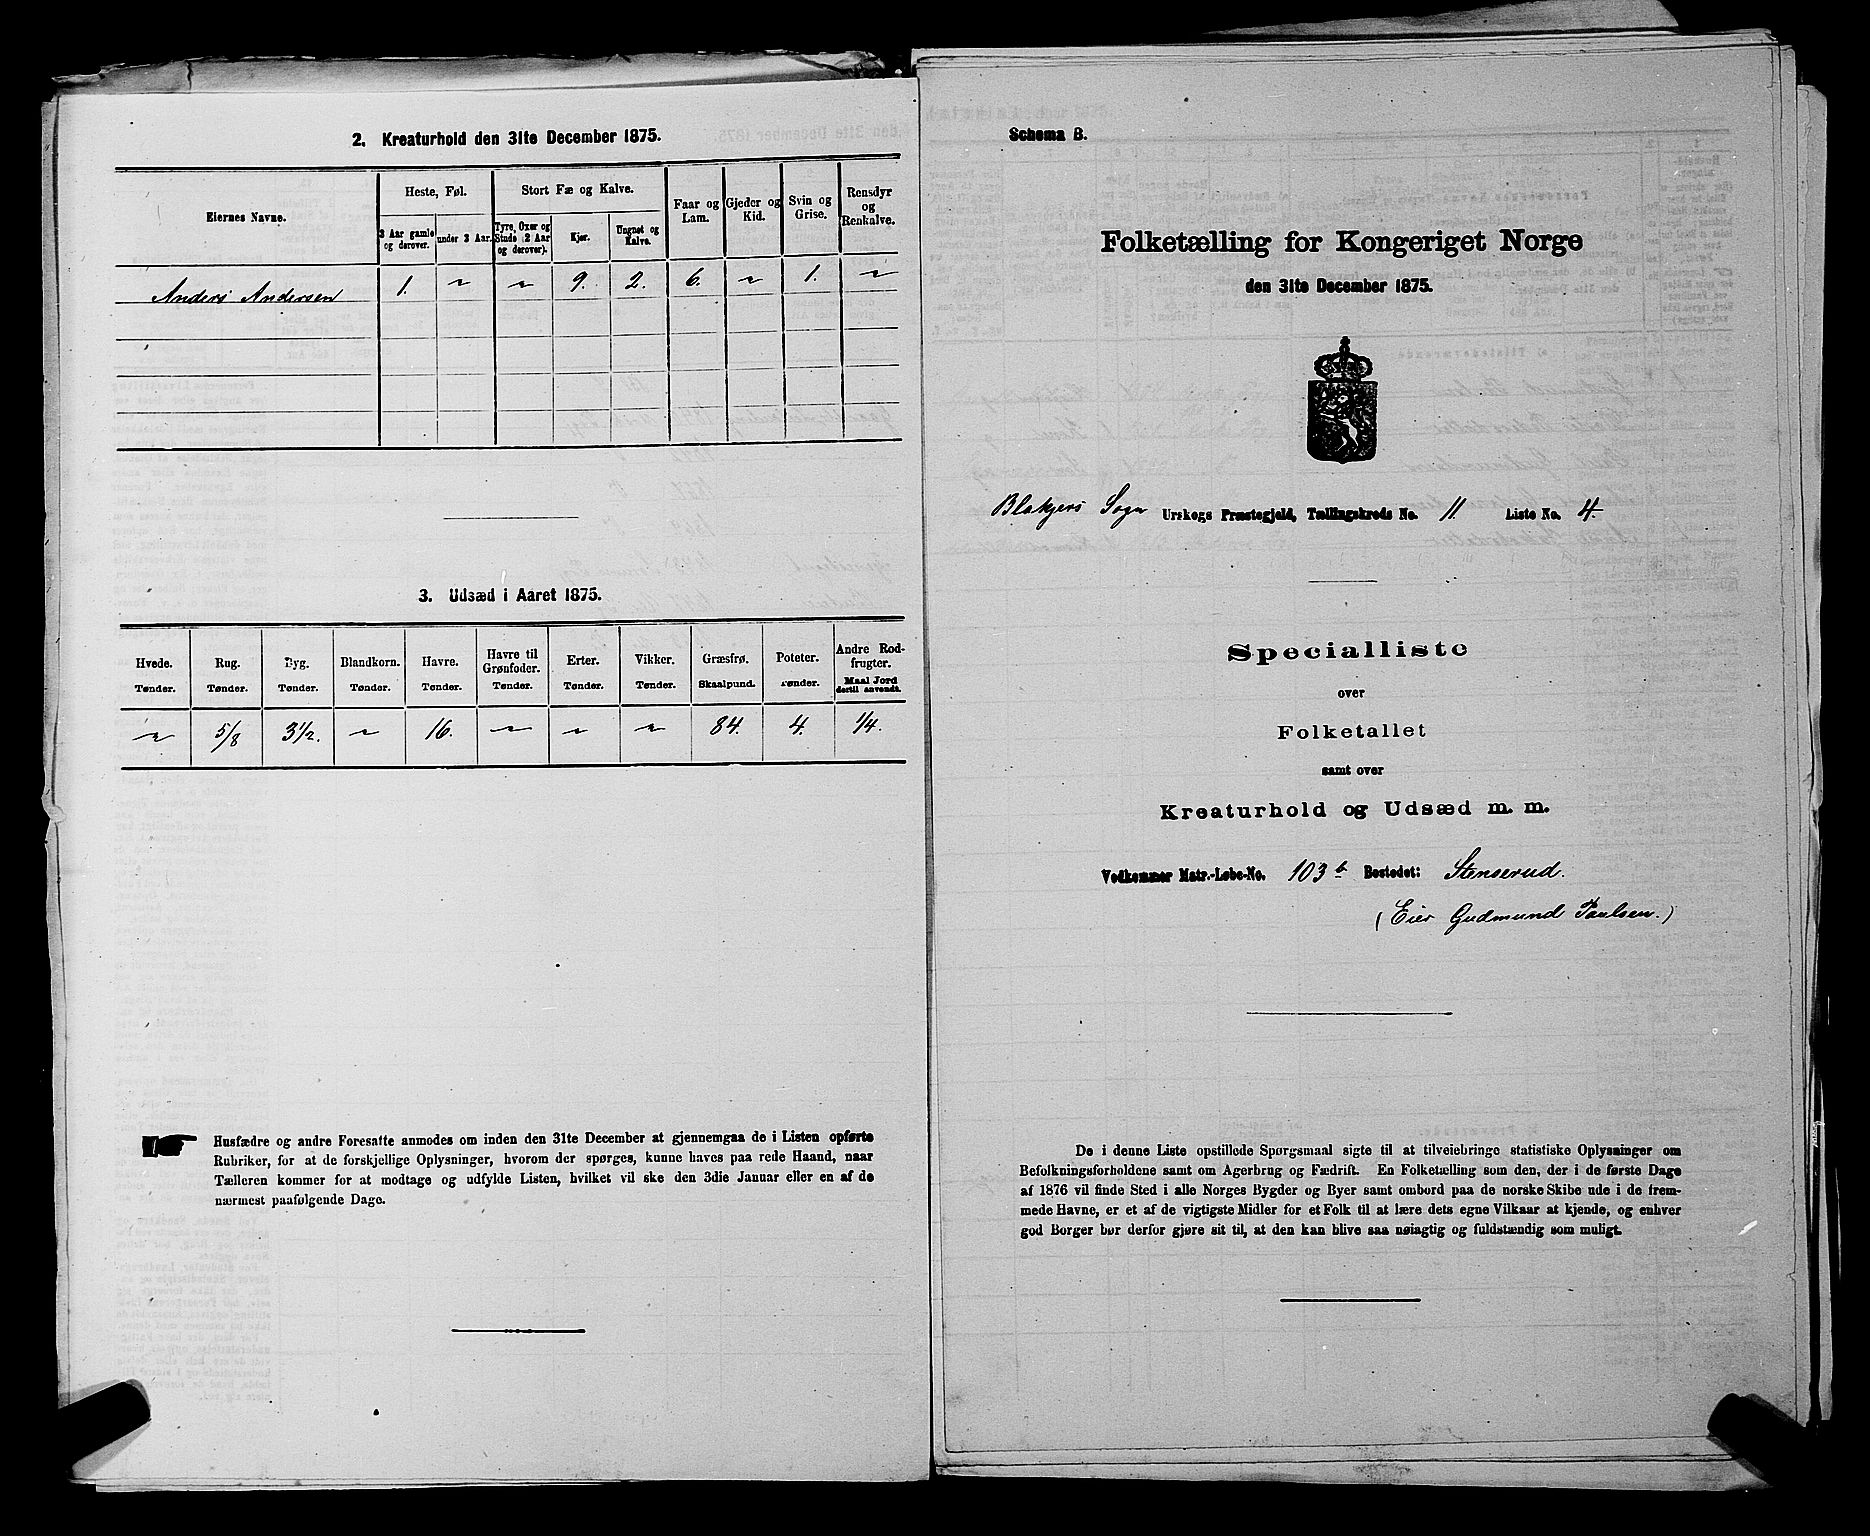 2. Kreaturhold den 31te December 1875.
Eiernes Navne.
Heste, Føl.
Stort Fæ og Kalve.
Faar og Lam.
Gjeder og Kid.
Svin og Grise.
Rensdyr og Renkalve.
3 Aar gamle og derover.
under 3 Aar.
Tyre, Oxer og Stude (2 Aar og derover).
Kjør.
Ungnet og Kalve.
Anders Andersen 1. " " 9. 2. 6. " 1. "
3. Udsæd i Aaret 1875.
Hvede. Rug. Byg. Blandkorn. Havre. Havre til Grønfoder. Erter. Vikker. Græsfrø. Poteter. Andre Rodfrugter.
Tønder. Tønder. Tønder. Tønder. Tønder. Tønder. Tønder. Tønder. Skaalpund. Tønder. Maal Jord dertil anvendt.
" 5/8 3 1/2. " 16. " " " 84. 4. 1/4.
Husfædre og andre Foresatte anmodes om inden den 31te December at gjennemgaa de i Listen opførte
Rubriker, for at de forskjellige Oplysninger, hvorom der spørges, kunne haves paa rede Haand, naar
Tælleren kommer for at modtage og udfylde Listen, hvilket vil ske den 3die Januar eller en af de
nærmest paafølgende Dage.
Schema B.
Folketælling for Kongeriget Norge
den 31te December 1875.
Blakjers Sogn Urskogs Præstegjeld, Tællingskreds No. 11. Liste No. 4.
Specialliste
over
Folketallet
samt over
Kreaturhold og Udsæd m. m.
Vedkommer Matr.-Løbe-No. 103 b Bostedet: Stenserud.
(Eier Gudmund Paulsen.)
De i denne Liste opstillede Spørgsmaal sigte til at tilveiebringe statistiske Oplysninger om
Befolkningsforholdene samt om Agerbrug og Fædrift. En Folketælling som den, der i de første Dage
af 1876 vil finde Sted i alle Norges Bygder og Byer samt ombord paa de norske Skibe ude i de frem-
mede Havne, er et af de vigtigste Midler for et Folk til at lære dets egne Vilkaar at kjende, og enhver
god Borger bør derfor gjøre sit til, at den kan blive saa nøiagtig og fuldstændig som muligt.